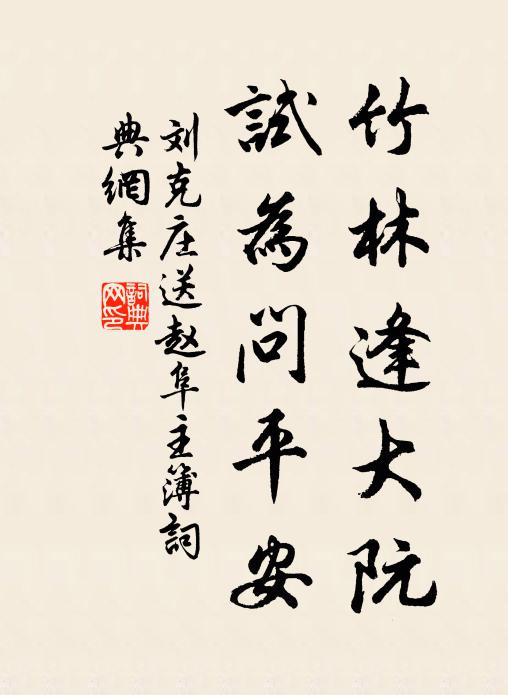 竹林逢大阮
試為問平安
刘克庄送赵阜主簿詞
典網集
詞典网印